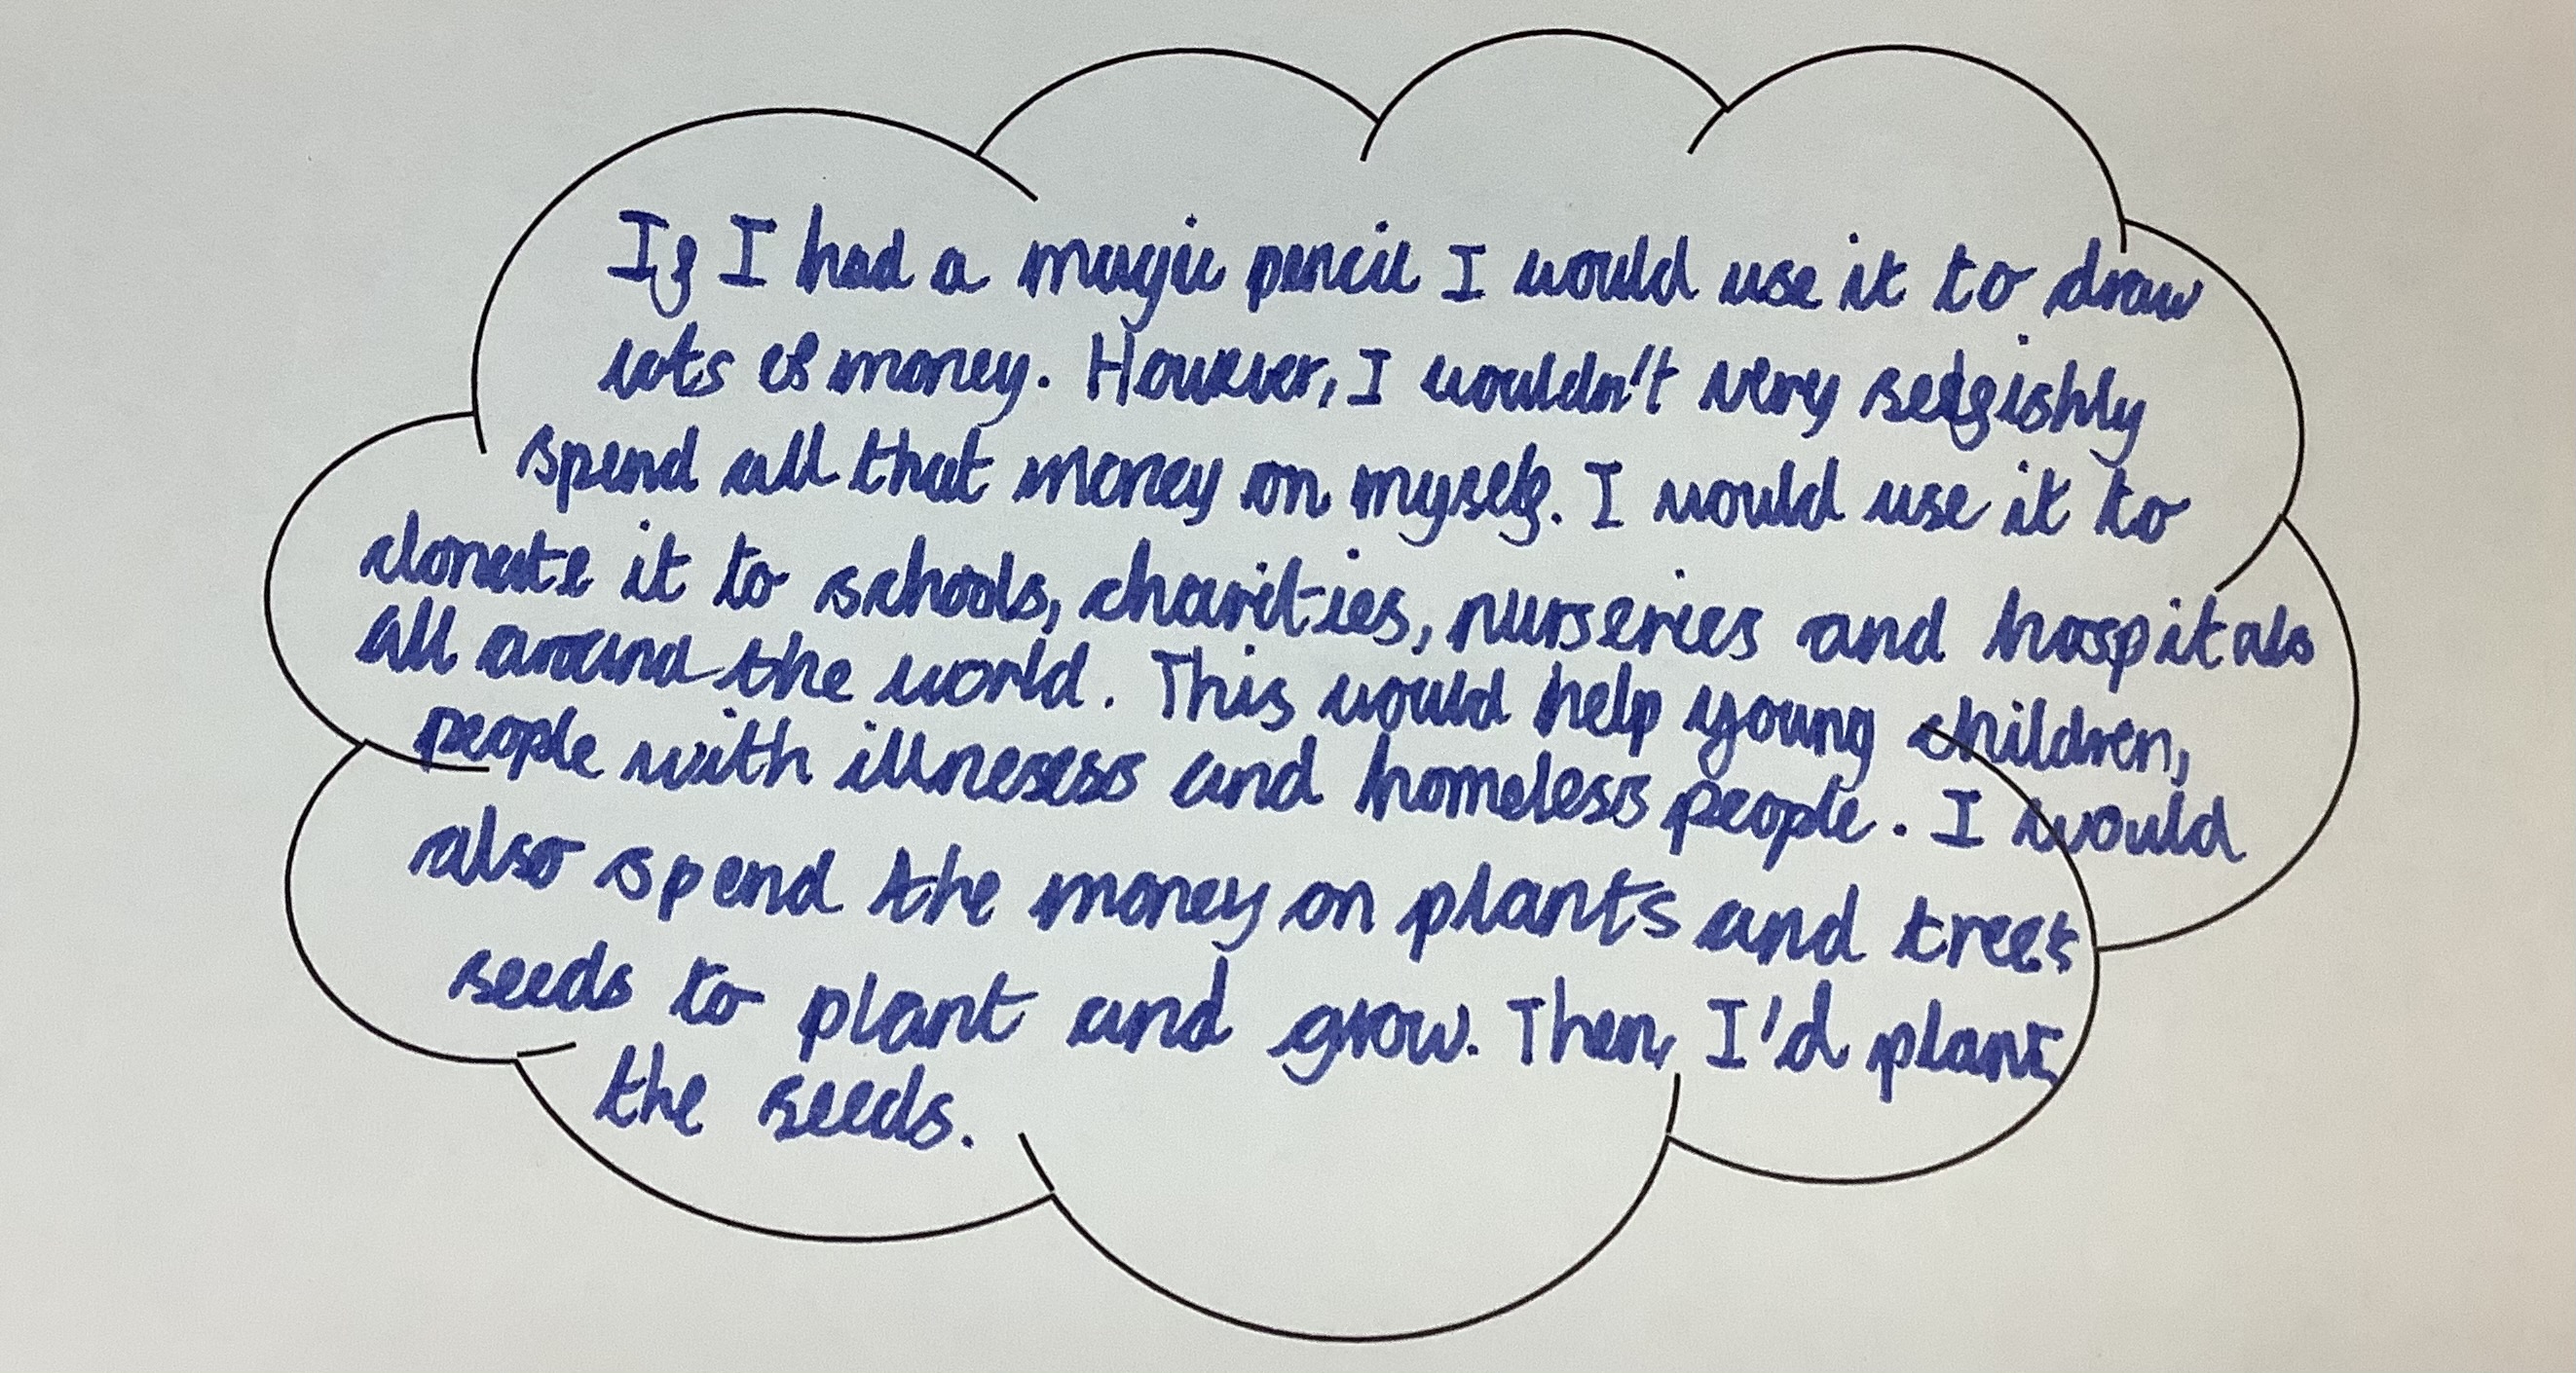 If I had a magic pencil I would use it to draw
lots of money. However, I wouldn't very selfishly
spend all that money on myself. I would use it to
donate it to schools, charities, nurseries and hospitals
all around the world. This would help young children,
people with illnesess and homeless people. I would
also spend the money on plants and trees
seeds to plant and grow. Then, I'd plant
the seeds.